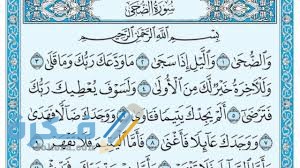 سُورَةُ الضُّحَى
بِسْمِ اللَّهِ الرَّحْمَٰنِ الرَّحِيمِ
وَالضُّحَىٰ ١ وَاللَّيْلِ إِذَا سَجَىٰ ٢ مَا وَدَّعَكَ رَبُّكَ وَمَا قَلَىٰ ٣
وَلَلْآخِرَةُ خَيْرٌ لَّكَ مِنَ الْأُولَىٰ ٤ وَلَسَوْفَ يُعْطِيكَ رَبُّكَ
فَتَرْضَىٰ ٥ أَلَمْ يَجِدْكَ يَتِيمًا فَآوَىٰ ٦ وَوَجَدَكَ ضَالًّا فَهَدَىٰ
٧ وَوَجَدَكَ عَائِلًا فَأَغْنَىٰ ٨ فَأَمَّا الْيَتِيمَ فَلَا تَقْهَرْ ٩